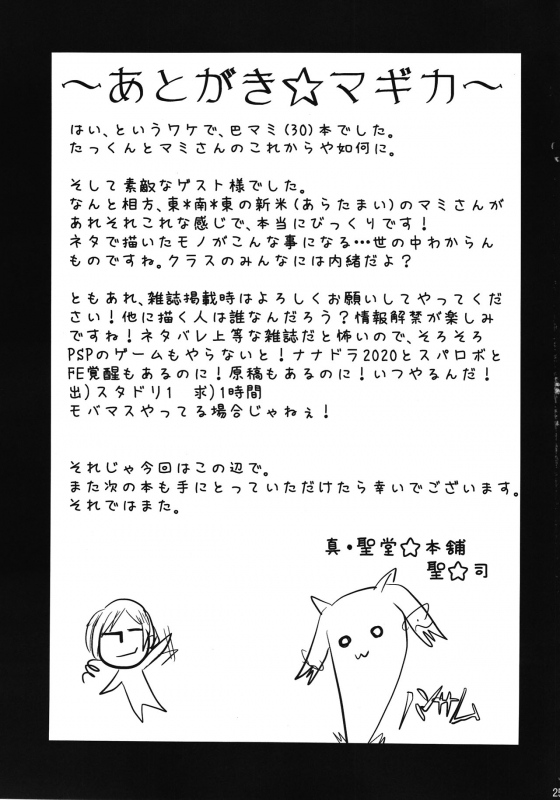 ～あとがき☆マギカ～
はい、というワケで、巴マミ(30)本でした。
たっくんとマミさんのこれからや如何に。
そして素敵なゲスト様でした。
なんと相方、東*南*東の新米(あらたまい)のマミさんが
あれそれこれな感じで、本当にびっくりです！
ネタで描いたモノがこんな事になる…世の中わからん
ものですね。クラスのみんなには内緒だよ？
ともあれ、雑誌掲載時はよろしくお願いしてやってくだ
さい！他に描く人は誰なんだろう？情報解禁が楽しみ
ですね！ネタバレ上等な雑誌だと怖いので、そろそろ
PSPのゲームもやらないと！ナナドラ2020とスパロボと
FE覚醒もあるのに！原稿もあるのに！いつやるんだ！
出)スタドリ1　求)1時間
モバマスやってる場合じゃねぇ！
それじゃ今回はこの辺で。
また次の本も手にとっていただけたら幸いでございます。
それではまた。
真・聖堂☆本舗
聖☆司
ハンサム